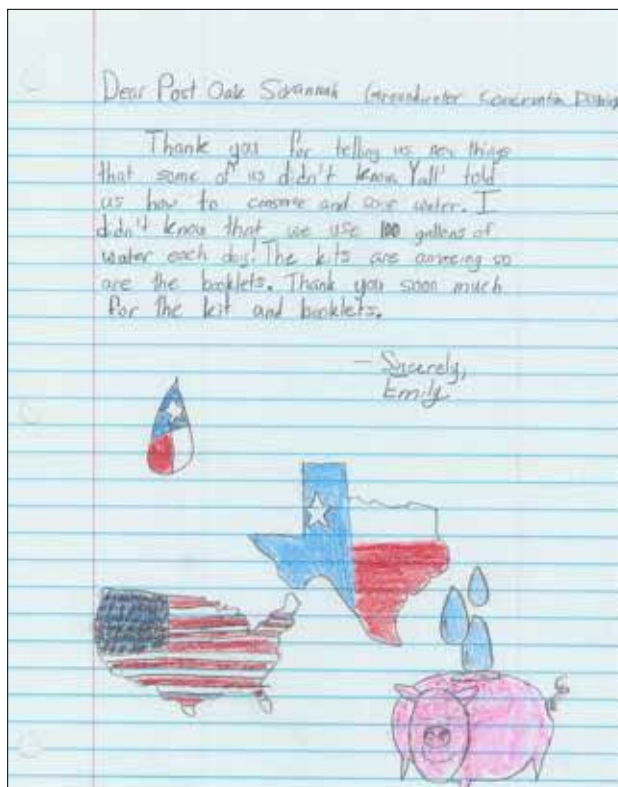 Dear Post Oak Savannah Groundwater Conservation
Thank you for telling us new things
that some of us didn't know. Yall' told
us how to conserve and save water. I
didn't know that we use 100 gallons of
water each day! The kits are amazing so
are the booklets. Thank you sooo much
for the kit and booklets.
— Sincerely,
Emily